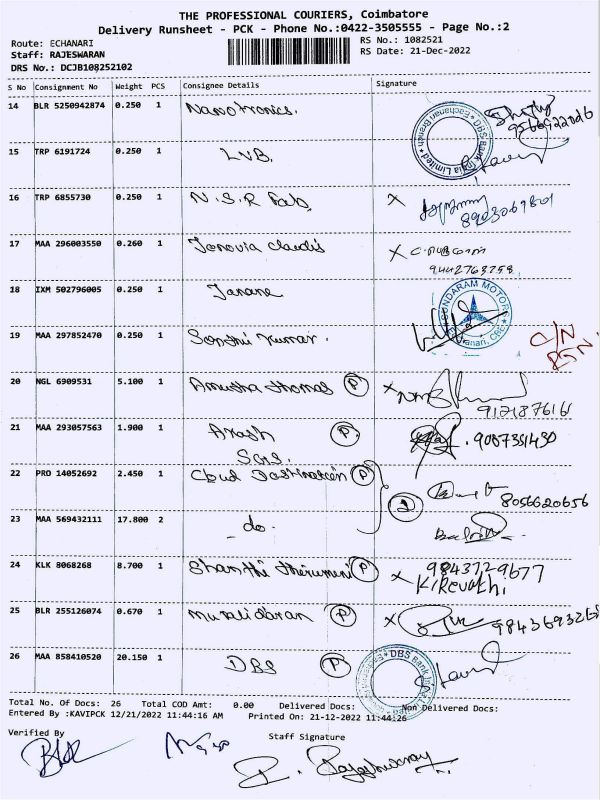 THE PROFESSIONAL COURIERS, Coimbatore
Delivery Runsheet - PCK - Phone No.:0422-3505555 - Page No.:2
Route: ECHANARI
RS No.: 1082521
Staff: RAJESWARAN
RS Date: 21-Dec-2022
DRS No.: DCJB108252102
S No Consignment No Weight PCS Consignee Details Signature
14 BLR 5250942874 0.250 1 Nanotronics.
9566922026
DBS Bank India Limited * Eachanari Branch *
15 TRP 6191724 0.250 1 LVB.
16 TRP 6855730 0.250 1 N.S.R Fab X
8903067801
17 MAA 296003550 0.260 1 Jenovia Claudis X
9442763758
18 IXM 502796005 0.250 1 Janane
SUNDARAM MOTORS
19 MAA 297852470 0.250 1 Senthil Kumar. C/N
20 NGL 6909531 5.100 1 Amutha Thomas P X
21 MAA 293057563 1.900 1 Arash P. 9087351430
Sons.
22 PRO 14052692 2.450 1 P 2 8056620656
23 MAA 569432111 17.800 2 - do -
24 KLK 8068268 8.700 1 Shanthi P X 9843729677
K. Revathi
25 BLR 255126074 0.670 1 Muralidaran P X
26 MAA 858410520 20.150 1 DBS P
DBS Bank
Total No. Of Docs: 26 Total COD Amt: 0.00 Delivered Docs: Non Delivered Docs:
Entered By :KAVIPCK 12/21/2022 11:44:16 AM Printed On: 21-12-2022 11:44:26
Verified By Staff Signature